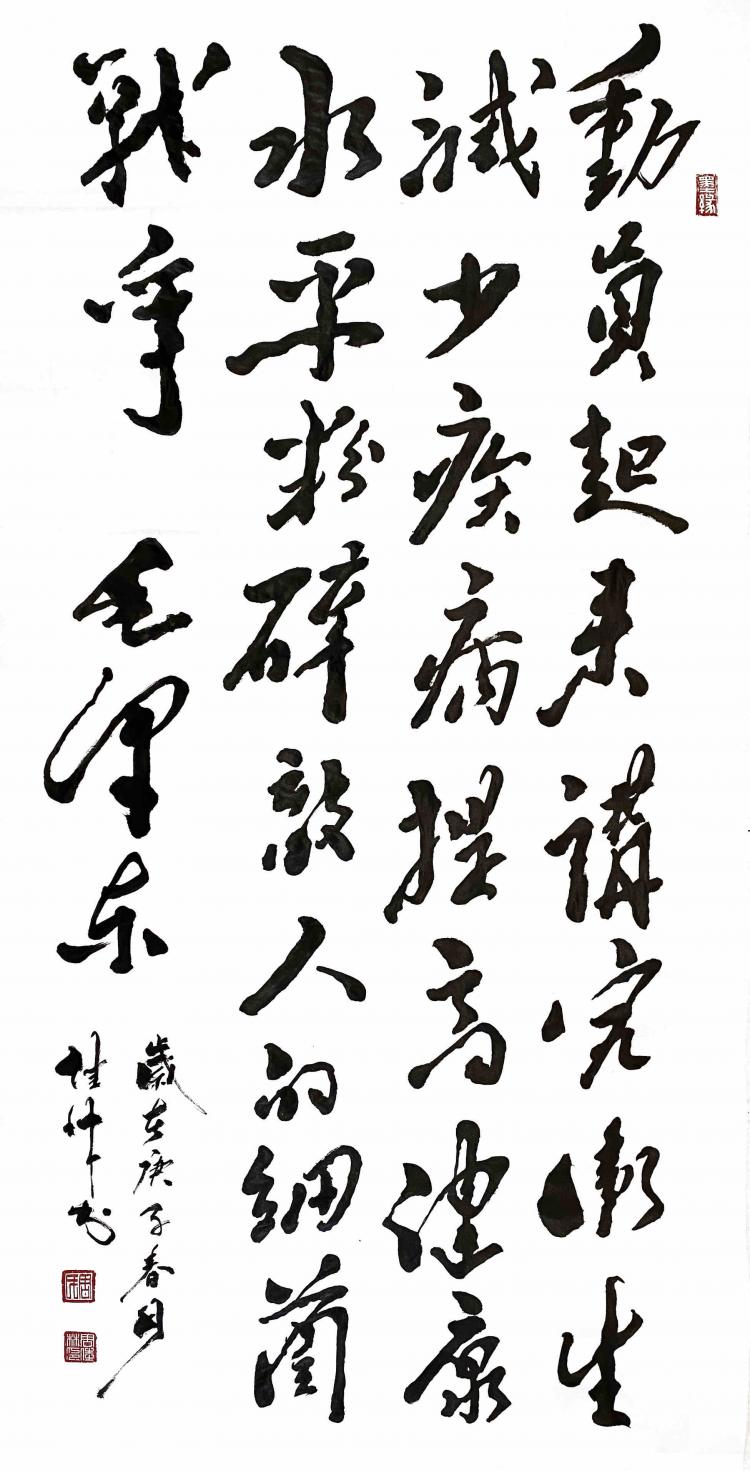 墨緣
動員起来講究衛生
減少疾病提高健康
水平粉碎敵人的細菌
戰爭 毛澤东
歲在庚子春月
书